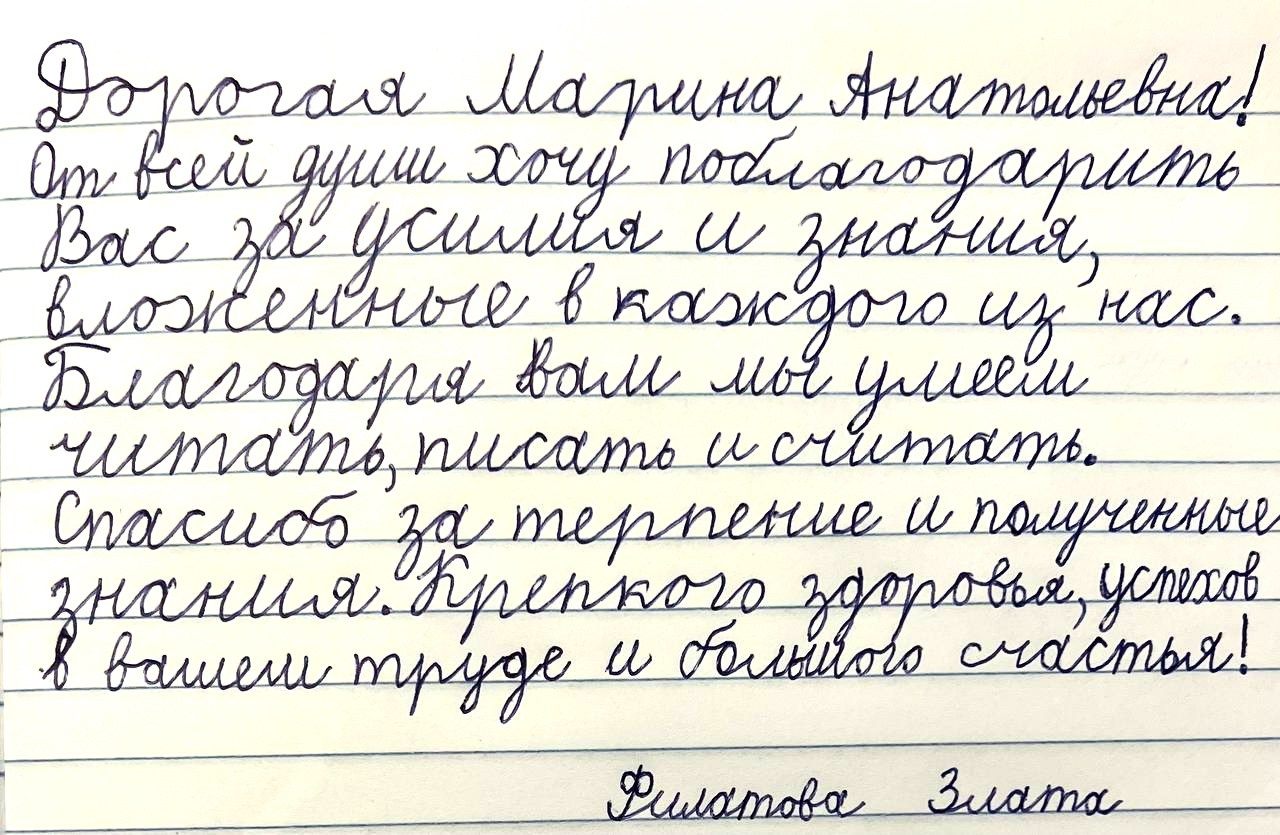 Дорогая Марина Анатольевна!
От всей души хочу поблагодарить
Вас за усилия и знания,
вложенные в каждого из нас.
Благодаря вам мы умеем
читать, писать и считать.
Спасибо за терпение и полученные
знания. Крепкого здоровья, успехов
в вашем труде и большого счастья!
Филатова Злата